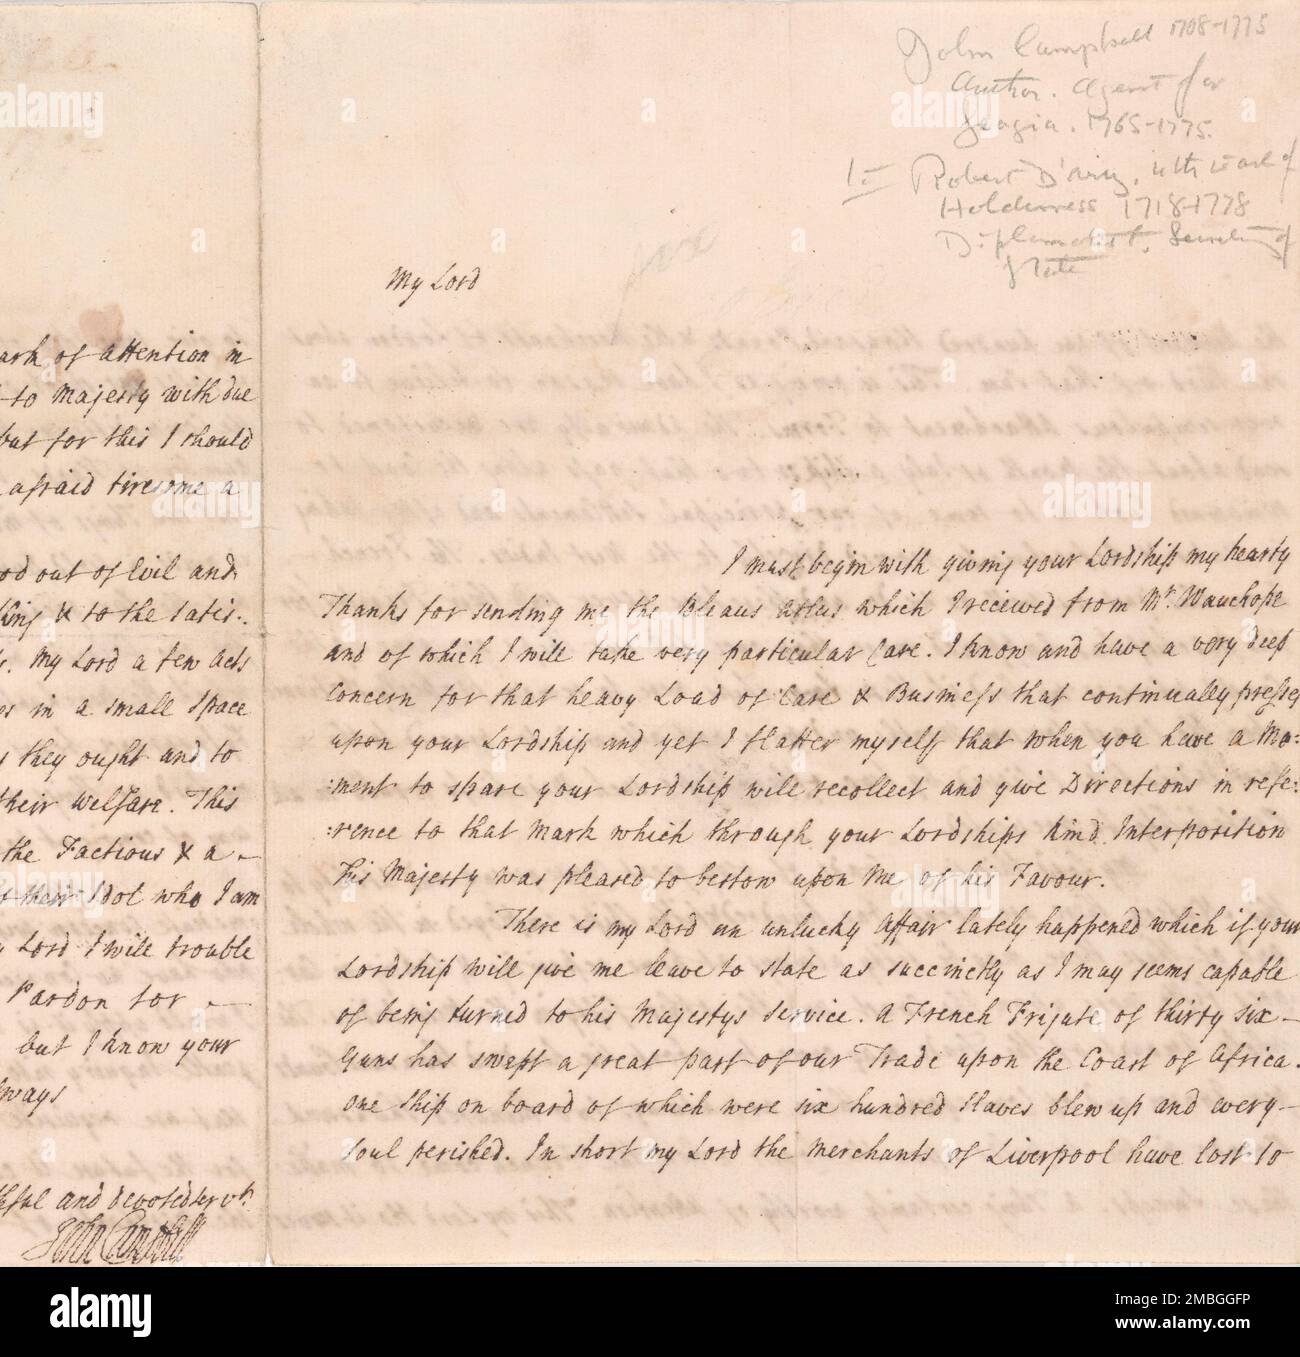 John Campbell 1708-1775
Author. Agent for
Georgia. 1765-1775.
to Robert D'arcy, 4th Earl of
Holderness 1718-1778
Diplomatist, Secretary of
State
My Lord
I must begin with giving your Lordship my hearty
Thanks for sending me the Bleaus atlas which I received from Mr. Wauchope
and of which I will take very particular Care. I know and have a very deep
Concern for that heavy Load of Care & Business that continually presses
upon your Lordship and yet I flatter myself that when you have a Mo:
:ment to spare your Lordship will recollect and give Directions in refe:
:rence to that Mark which through your Lordships kind Interposition
his Majesty was pleased to bestow upon Me of his Favour.
There is my Lord an unlucky Affair lately happened which if your
Lordship will give me leave to state as succinctly as I may seems capable
of being turned to his Majestys Service. A French Frigate of thirty six –
Guns has swept a great part of our Trade upon the Coast of Africa.
one Ship on board of which were six hundred Slaves blew up and every –
Soul perished. In short my Lord the Merchants of Liverpool have lost to
ark of attention in
to Majesty with due
but for this I should
afraid tiresome a
od out of Evil and
King & to the satis:
My Lord a few Acts
es in a small space
they ought and to
their Welfare. This
the Factious & a –
their Idol who I am
Lord I will trouble
Pardon for –
but I know your
lways
thful and devoted servt.
John Campbell
alamy
Image ID: 2MBGGFP
www.alamy.com